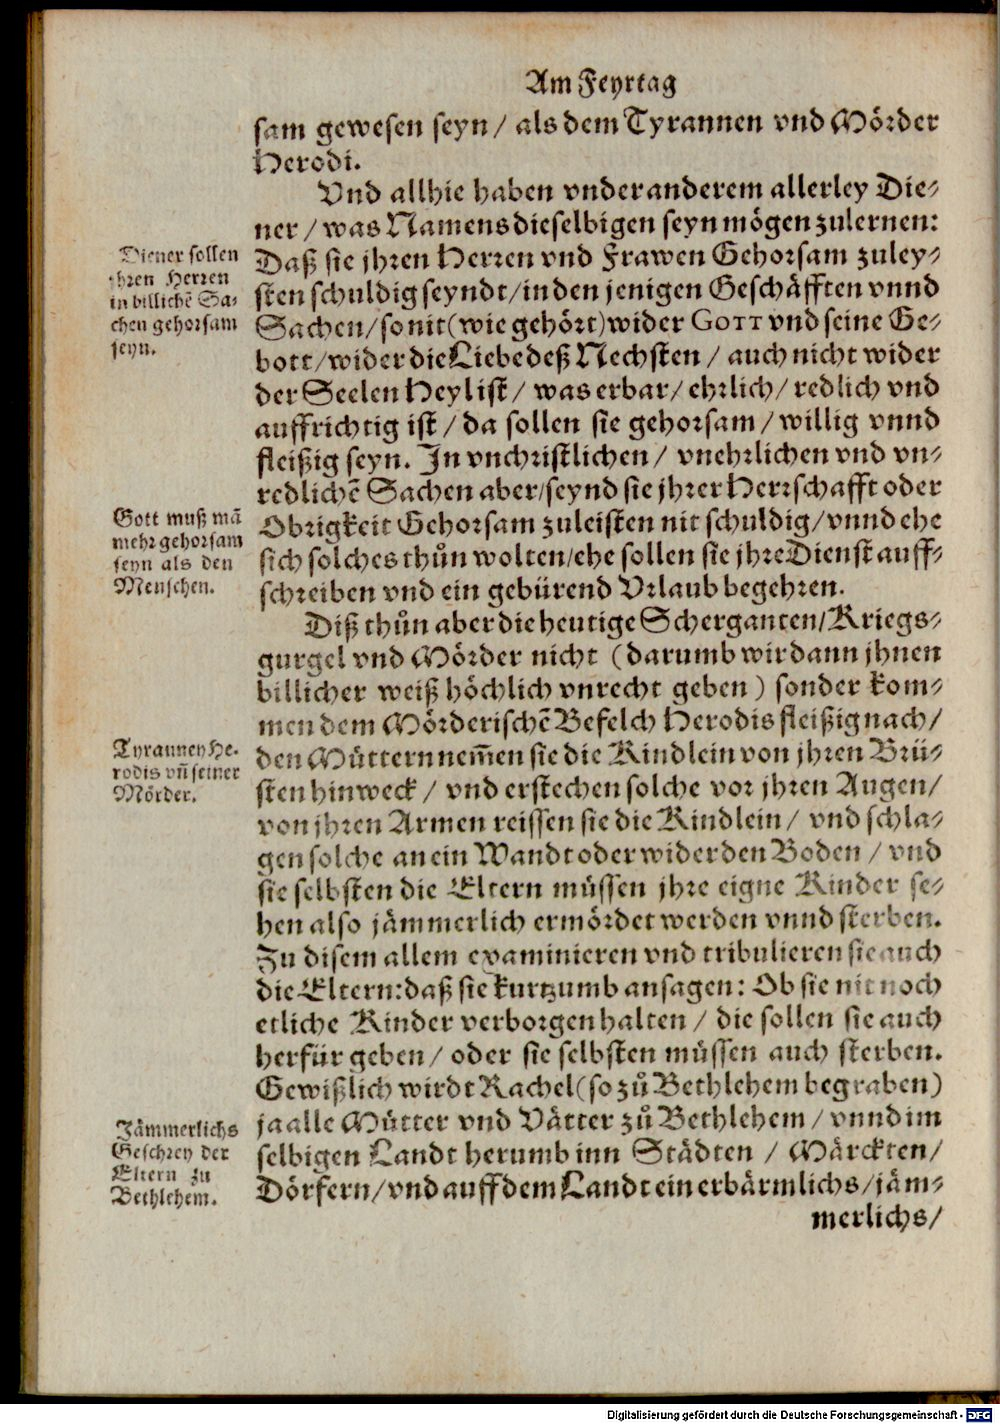 Am Feyrtag
sam gewesen seyn / als dem Tyrannen vnd Mörder
Herodi.
Vnd allhie haben vnder anderem allerley Die-
ner / was Namens dieselbigen seyn mögen zulernen:
Diener sollen
jhren Herren
in billichẽ Sa-
chen gehorsam
seyn.
Daß sie jhren Herren vnd Frawen Gehorsam zuley-
sten schuldig seyndt / in den jenigen Geschäfften vnnd
Sachen / so nit (wie gehört) wider GOTT vnd seine Ge-
bott / wider die Liebe deß Nechsten / auch nicht wider
der Seelen Heyl ist / was erbar / ehrlich / redlich vnd
auffrichtig ist / da sollen sie gehorsam / willig vnnd
fleißig seyn. In vnchristlichen / vnehrlichen vnd vn-
redlichẽ Sachen aber / seynd sie jhrer Herrschafft oder
Gott muß mã
mehr gehorsam
seyn als den
Menschen.
Obrigkeit Gehorsam zuleisten nit schuldig / vnnd ehe
sich solches thůn wolten / ehe sollen sie jhre Dienst auff-
schreiben vnd ein gebürend Vrlaub begehren.
Diß thůn aber die heutige Scherganten / Kriegs-
gurgel vnd Mörder nicht (darumb wir dann jhnen
billicher weiß höchlich vnrecht geben) sonder kom-
men dem Mörderischẽ Befelch Herodis fleißig nach /
Tyranney He-
rodis vñ seiner
Mörder.
den Müttern nem̃en sie die Kindlein von jhren Brü-
sten hinweck / vnd erstechen solche vor jhren Augen /
von jhren Armen reissen sie die Kindlein / vnd schla-
gen solche an ein Wandt oder wider den Boden / vnd
sie selbsten die Eltern müssen jhre eigne Kinder se-
hen also jämmerlich ermördet werden vnnd sterben.
Zu disem allem examinieren vnd tribulieren sie auch
die Eltern: daß sie kurtzumb ansagen: Ob sie nit noch
etliche Kinder verborgen halten / die sollen sie auch
herfür geben / oder sie selbsten müssen auch sterben.
Gewißlich wirdt Rachel (so zů Bethlehem begraben)
Jämmerlichs
Geschrey der
Eltern zu
Bethlehem.
ja alle Mütter vnd Vätter zů Bethlehem / vnnd im
selbigen Landt herumb inn Städten / Märckten /
Dörfern / vnd auff dem Landt ein erbärmlichs / jäm-
merlichs /
Digitalisierung gefördert durch die Deutsche Forschungsgemeinschaft - DFG